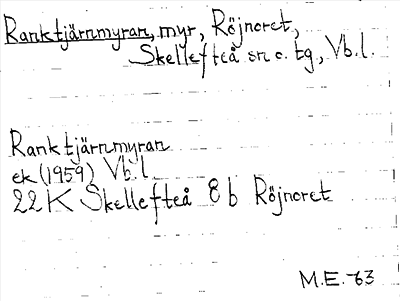 Ranktjärnmyran, myr, Röjnoret,
Skellefteå sn o. tg., Vb.l.
Ranktjärnmyran
ek (1959) Vb.l
22 K Skellefteå 8 b Röjnoret
M.E. -63